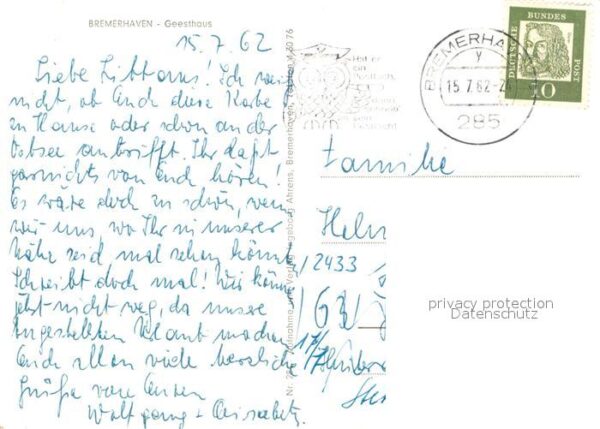 BREMERHAVEN - Geesthaus
15.7.62
Liebe Littaus! Ich weiß
nicht, ob Euch diese Karte
zu Hause oder schon an der
Ostsee antrifft. Ihr laßt
garnichts von Euch hören!
Es wäre doch zu schön, wenn
wir uns, wo Ihr in unserer
Nähe seid mal sehen könnt
Schreibt doch mal! Wir könn
jetzt nicht weg, da unsere
Angestellten Urlaub machen
Euch allen viele herzliche
Grüße von Euren
Wolfgang + Elisabeth
Verlag Ingeborg Ahrens, Bremerhaven, Telefon
BREMERHAV
15.7.62-2
285
DEUTSCHE BUNDESPOST
10
Familie
Helm
2433
163
17/7
privacy protection
Datenschutz